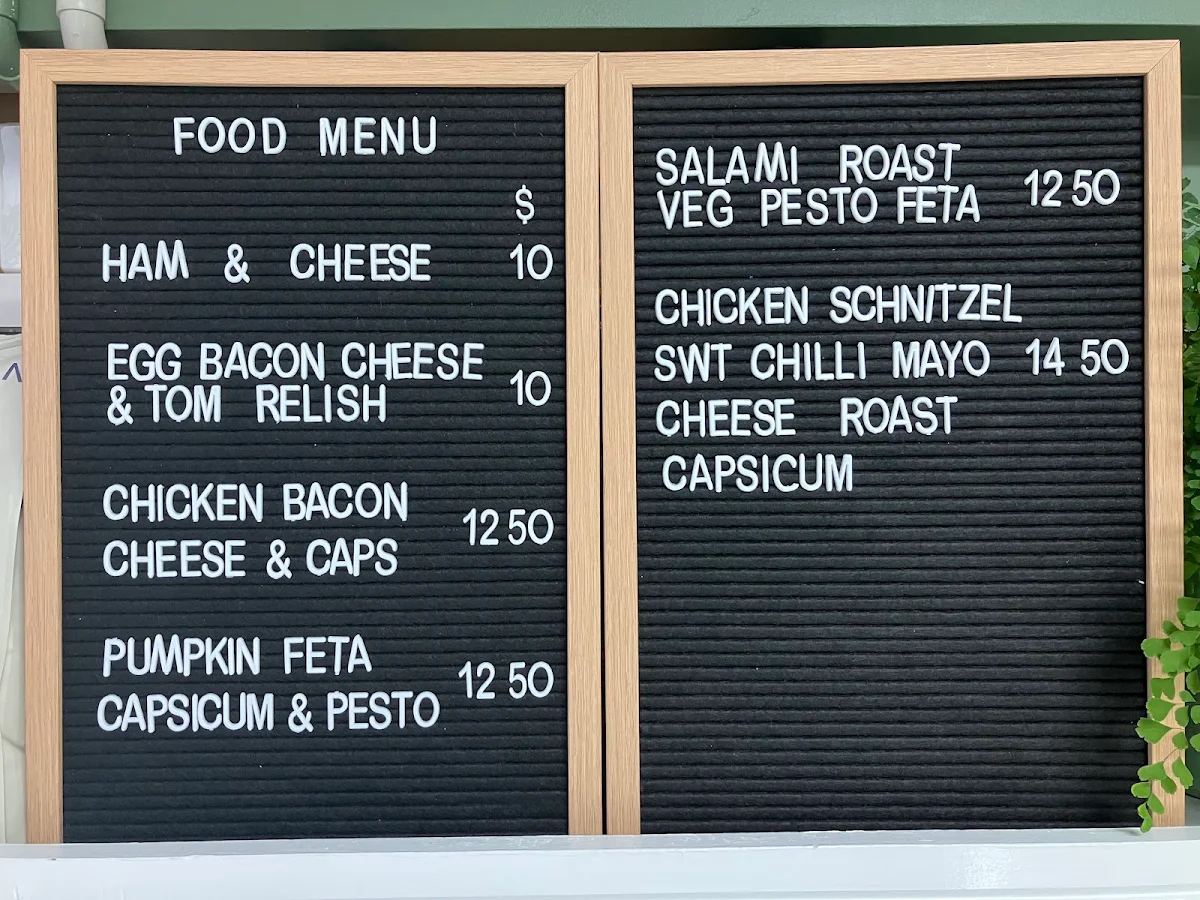 FOOD MENU
$
HAM & CHEESE 10
EGG BACON CHEESE
& TOM RELISH 10
CHICKEN BACON
CHEESE & CAPS 12 50
PUMPKIN FETA
CAPSICUM & PESTO 12 50
SALAMI ROAST
VEG PESTO FETA 12 50
CHICKEN SCHNITZEL
SWT CHILLI MAYO 14 50
CHEESE ROAST
CAPSICUM